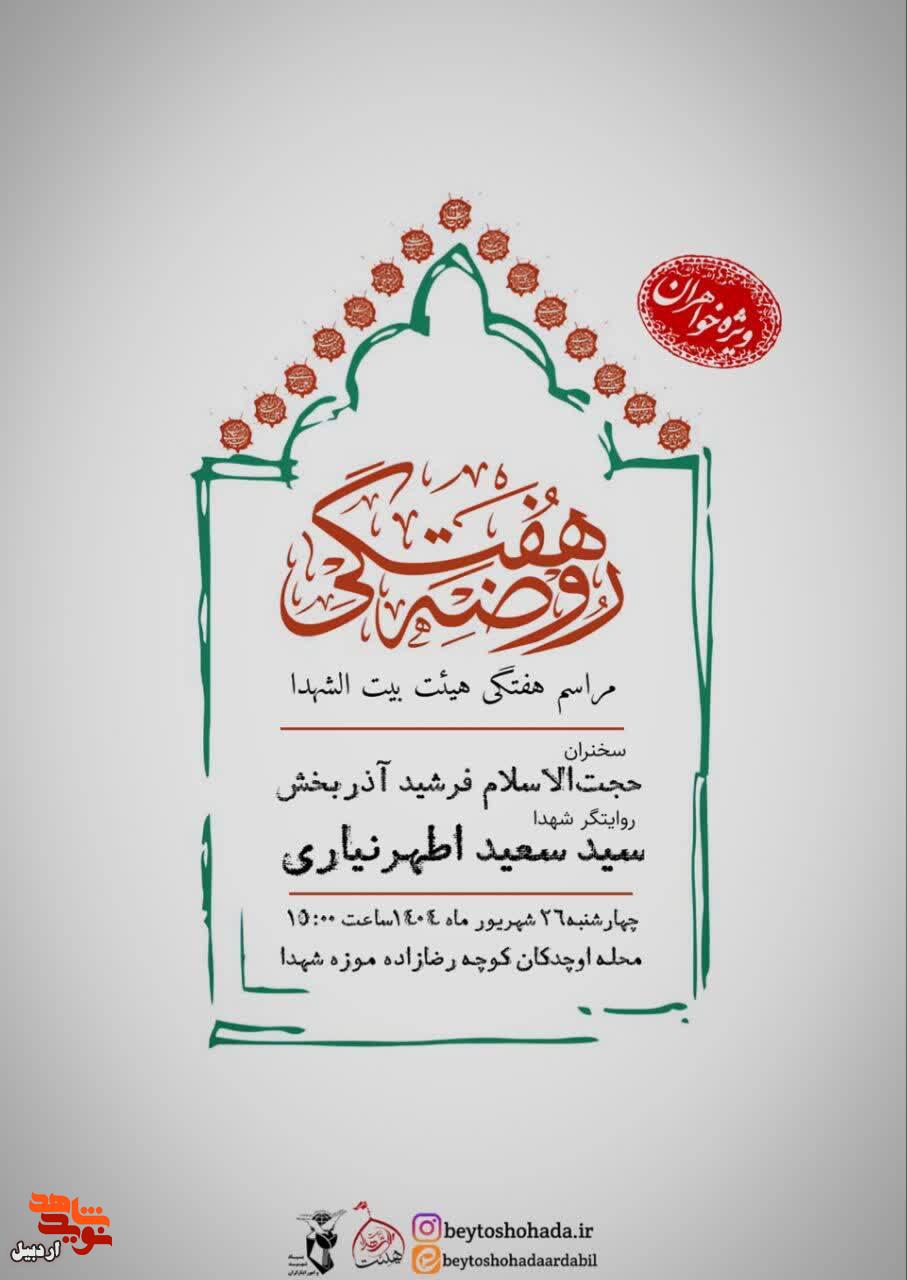 ویژه خواهران
روضه هفتگی
مراسم هفتگی هیئت بیت الشهدا
سخنران
حجت‌الاسلام فرشید آذربخش
روایتگر شهدا
سید سعید اطهرنیاری
چهارشنبه ۲۶ شهریور ماه ۱۴۰۴ ساعت ۱۵:۰۰
محله اوچدکان کوچه رضازاده موزه شهدا
beytoshohada.ir
beytoshohadaardabil
هیئت
نوید شاهد
اردبیل